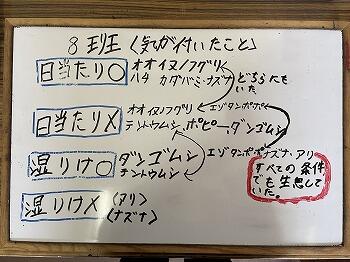 8班〈気が付いたこと〉
日当たり○ オオイヌノフグリ
ハチ カタバミ・ナズナ どちらにもいた
日当たり× オオイヌノフグリ エゾタンポポ
テントウムシ、ポピー、ダンゴムシ
湿りけ○ ダンゴムシ エゾタンポポ ナズナ・アリ
テントウムシ
すべての条件
でも生息して
いた。
湿りけ× 〈アリ〉
〈ナズナ〉